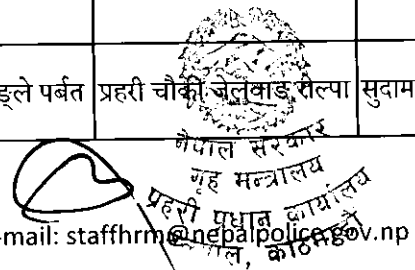 ङ्ले पर्बत प्रहरी चौकी जेलुवाङ रोल्पा सुदाम
नेपाल सरकार
गृह मन्त्रालय
प्रहरी प्रधान कार्यालय
नेपाल, काठमाडौं
-mail: staffhrm@nepalpolice.gov.np